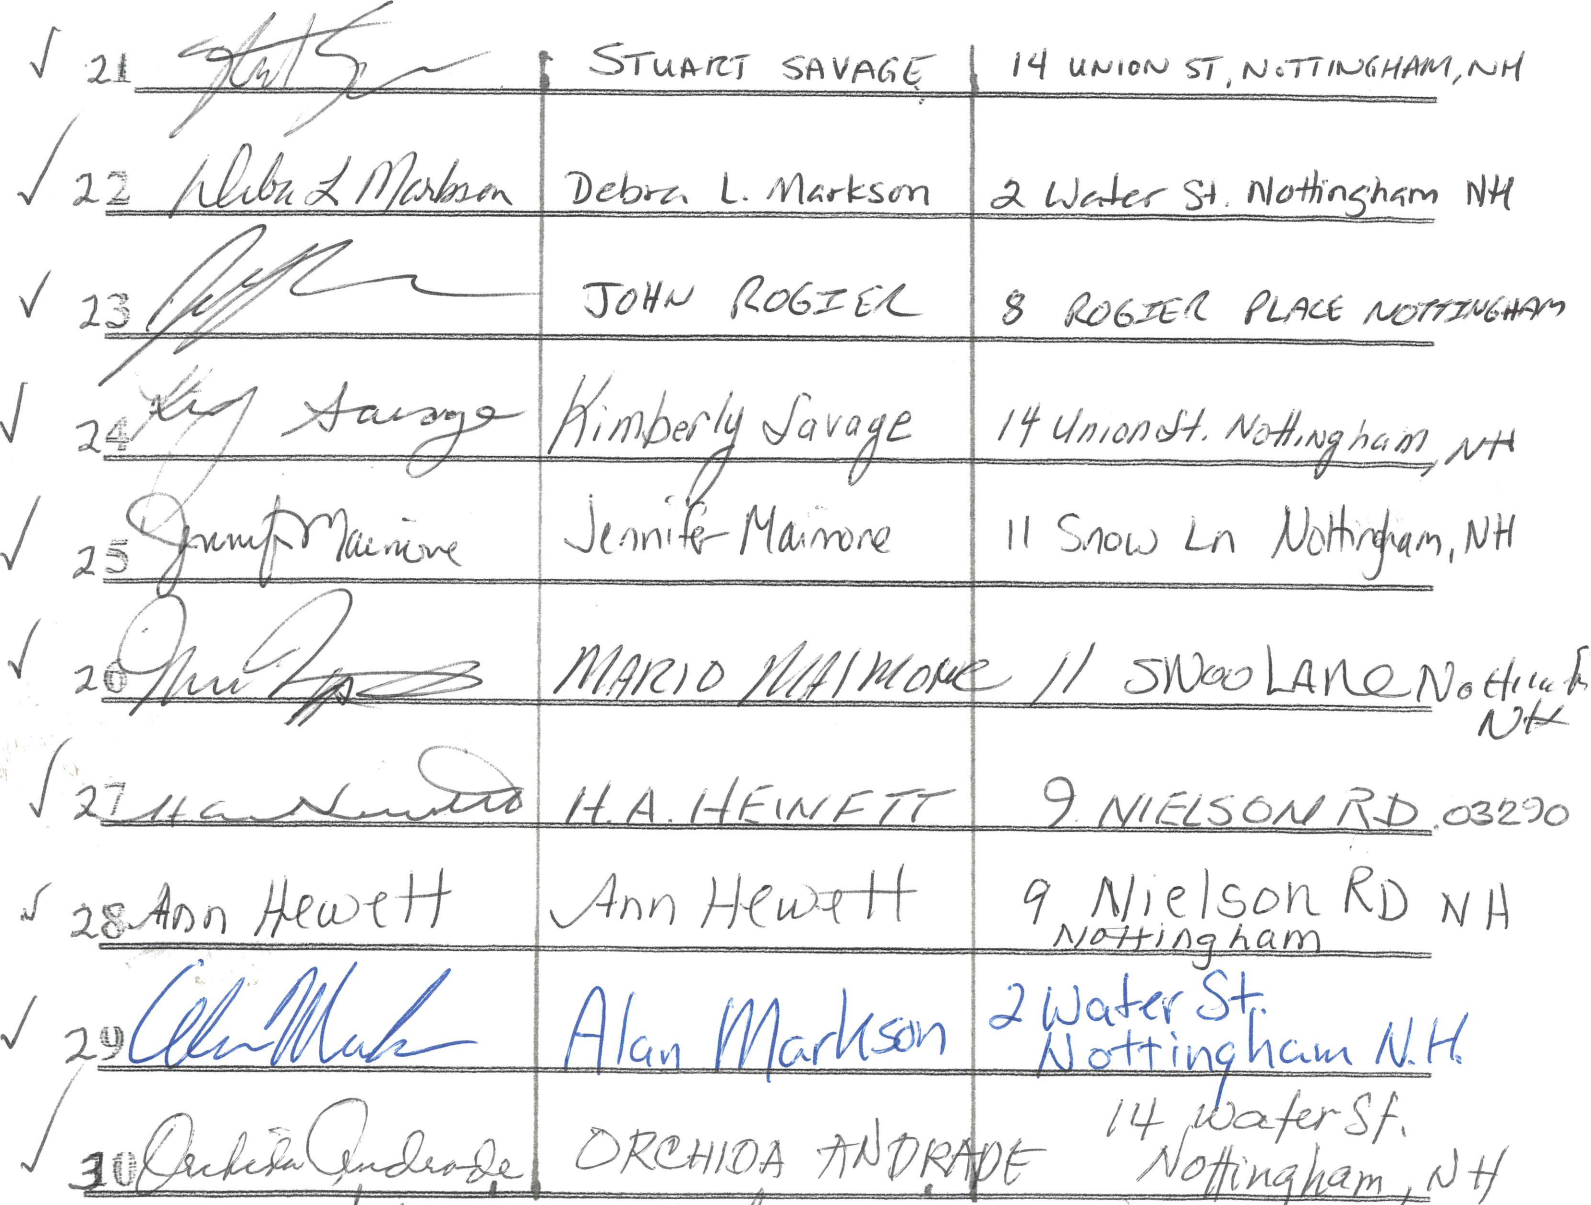 ✓ 21 Stuart Savage STUART SAVAGE 14 UNION ST, NOTTINGHAM, NH
✓ 22 Debra L Markson Debra L. Markson 2 Water St. Nottingham NH
✓ 23 JOHN ROGIER 8 ROGIER PLACE NOTTINGHAM
✓ 24 Kim Savage Kimberly Savage 14 Union St. Nottingham, NH
✓ 25 Jennifer Maimone Jennifer Maimone 11 Snow Ln Nottingham, NH
✓ 26 MARIO MAIMONE 11 SNOW LANE
NH
✓ 27 H.A. HEWETT 9 NIELSON RD. 03290
✓ 28 Ann Hewett Ann Hewett 9 Nielson RD NH
Nottingham
✓ 29 Alan Markson 2 Water St.
Nottingham N.H.
✓ 30 Orchida Andrade ORCHIDA ANDRADE 14 Water St.
Nottingham, NH